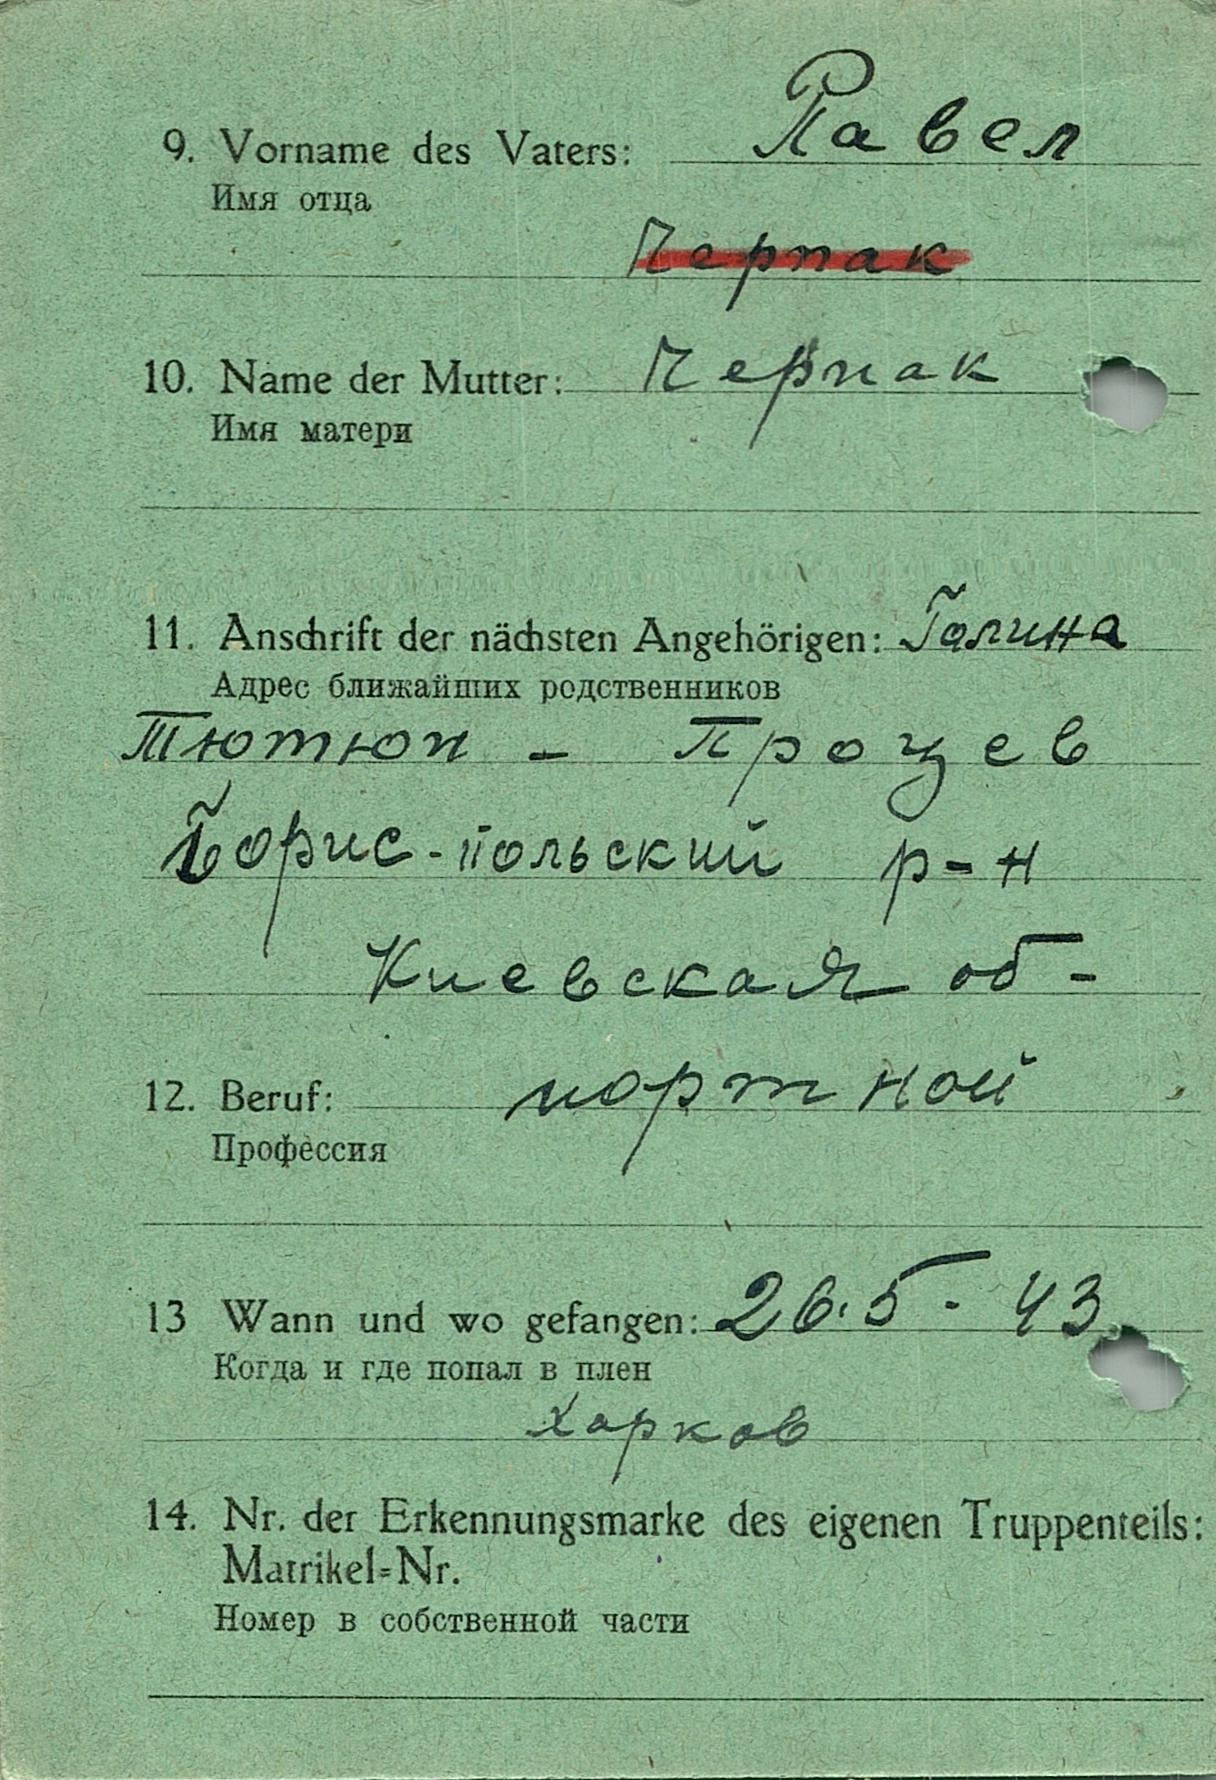 9. Vorname des Vaters: Павел
Имя отца
Черпак
10. Name der Mutter: Черпак
Имя матери
11. Anschrift der nächsten Angehörigen: Галина
Адрес ближайших родственников
Тютюн - Процев
Борис-польский р-н
Киевская об-
12. Beruf: портной
Профессия
13 Wann und wo gefangen: 26.5-43
Когда и где попал в плен
Харков
14. Nr. der Erkennungsmarke des eigenen Truppenteils:
Matrikel=Nr.
Номер в собственной части